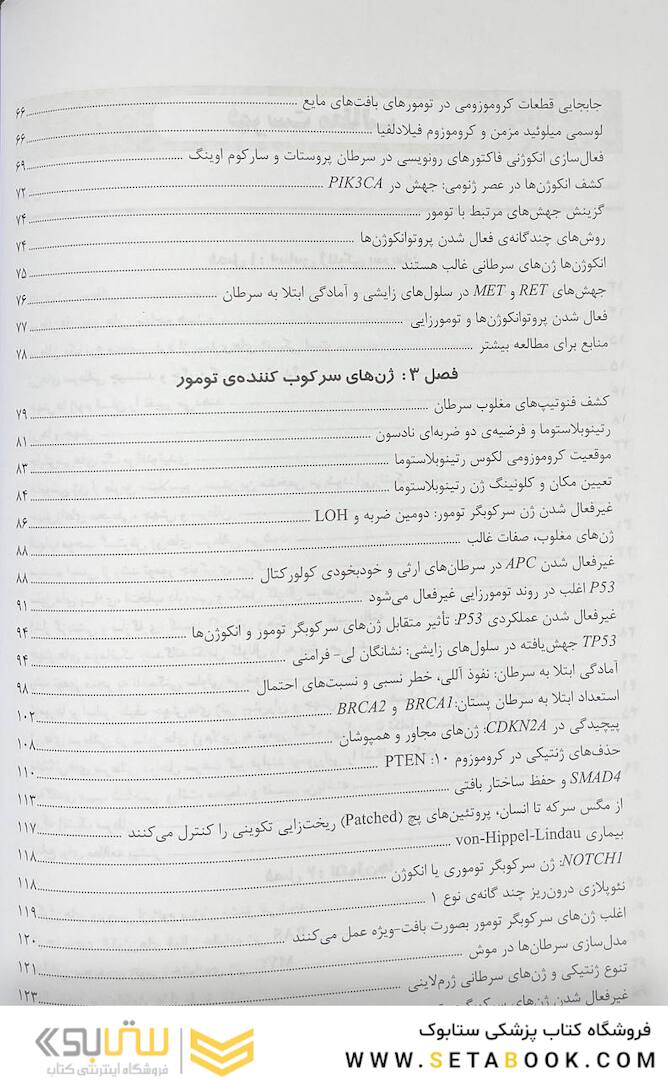 جابجایی قطعات کروموزومی در تومورهای بافت‌های مایع ........ ۶۶
لوسمی میلوئید مزمن و کروموزوم فیلادلفیا ........ ۶۶
فعال‌سازی انکوژنی فاکتورهای رونویسی در سرطان پروستات و سارکوم اوینگ ........ ۶۹
کشف انکوژن‌ها در عصر ژنومی: جهش در PIK3CA ........ ۷۲
گزینش جهش‌های مرتبط با تومور ........ ۷۴
روش‌های چندگانه‌ی فعال شدن پروتوانکوژن‌ها ........ ۷۴
انکوژن‌ها ژن‌های سرطانی غالب هستند ........ ۷۵
جهش‌های RET و MET در سلول‌های زایشی و آمادگی ابتلا به سرطان ........ ۷۶
فعال شدن پروتوانکوژن‌ها و تومورزایی ........ ۷۷
منابع برای مطالعه بیشتر ........ ۷۸
فصل ۳: ژن‌های سرکوب کننده‌ی تومور
کشف فنوتیپ‌های مغلوب سرطان ........ ۷۹
رتینوبلاستوما و فرضیه‌ی دو ضربه‌ای نادسون ........ ۸۱
موقعیت کروموزومی لکوس رتینوبلاستوما ........ ۸۳
تعیین مکان و کلونینگ ژن رتینوبلاستوما ........ ۸۴
غیرفعال شدن ژن سرکوبگر تومور: دومین ضربه و LOH ........ ۸۶
ژن‌های مغلوب، صفات غالب ........ ۸۸
غیرفعال شدن APC در سرطان‌های ارثی و خودبخودی کولورکتال ........ ۸۸
P53 اغلب در روند تومورزایی غیرفعال می‌شود ........ ۹۱
غیرفعال شدن عملکردی P53: تأثیر متقابل ژن‌های سرکوبگر تومور و انکوژن‌ها ........ ۹۴
TP53 جهش‌یافته در سلول‌های زایشی: نشانگان لی- فرامنی ........ ۹۴
آمادگی ابتلا به سرطان: نفوذ آللی، خطر نسبی و نسبت‌های احتمال ........ ۹۸
استعداد ابتلا به سرطان پستان: BRCA1 و BRCA2 ........ ۱۰۲
پیچیدگی در CDKN2A: ژن‌های مجاور و همپوشان ........ ۱۰۸
حذف‌های ژنتیکی در کروموزوم ۱۰: PTEN ........ ۱۱۰
SMAD4 و حفظ ساختار بافتی ........ ۱۱۳
از مگس سرکه تا انسان، پروتئین‌های پچ (Patched) ریخت‌زایی تکوینی را کنترل می‌کنند ........ ۱۱۷
بیماری von-Hippel-Lindau ........ ۱۱۸
NOTCH1: ژن سرکوبگر توموری یا انکوژن ........ ۱۱۸
نئوپلازی درون‌ریز چند گانه‌ی نوع ۱ ........ ۱۱۹
اغلب ژن‌های سرکوبگر تومور بصورت بافت-ویژه عمل می‌کنند ........ ۱۲۰
مدل‌سازی سرطان‌ها در موش ........ ۱۲۱
تنوع ژنتیکی و ژن‌های سرطانی ژرم‌لاینی ........ ۱۲۳
غیرفعال شدن ژن‌های سرکوبگر
فروشگاه کتاب پزشکی ستابوک
WWW.SETABOOK.COM
ستابوک
فروشگاه اینترنتی کتاب